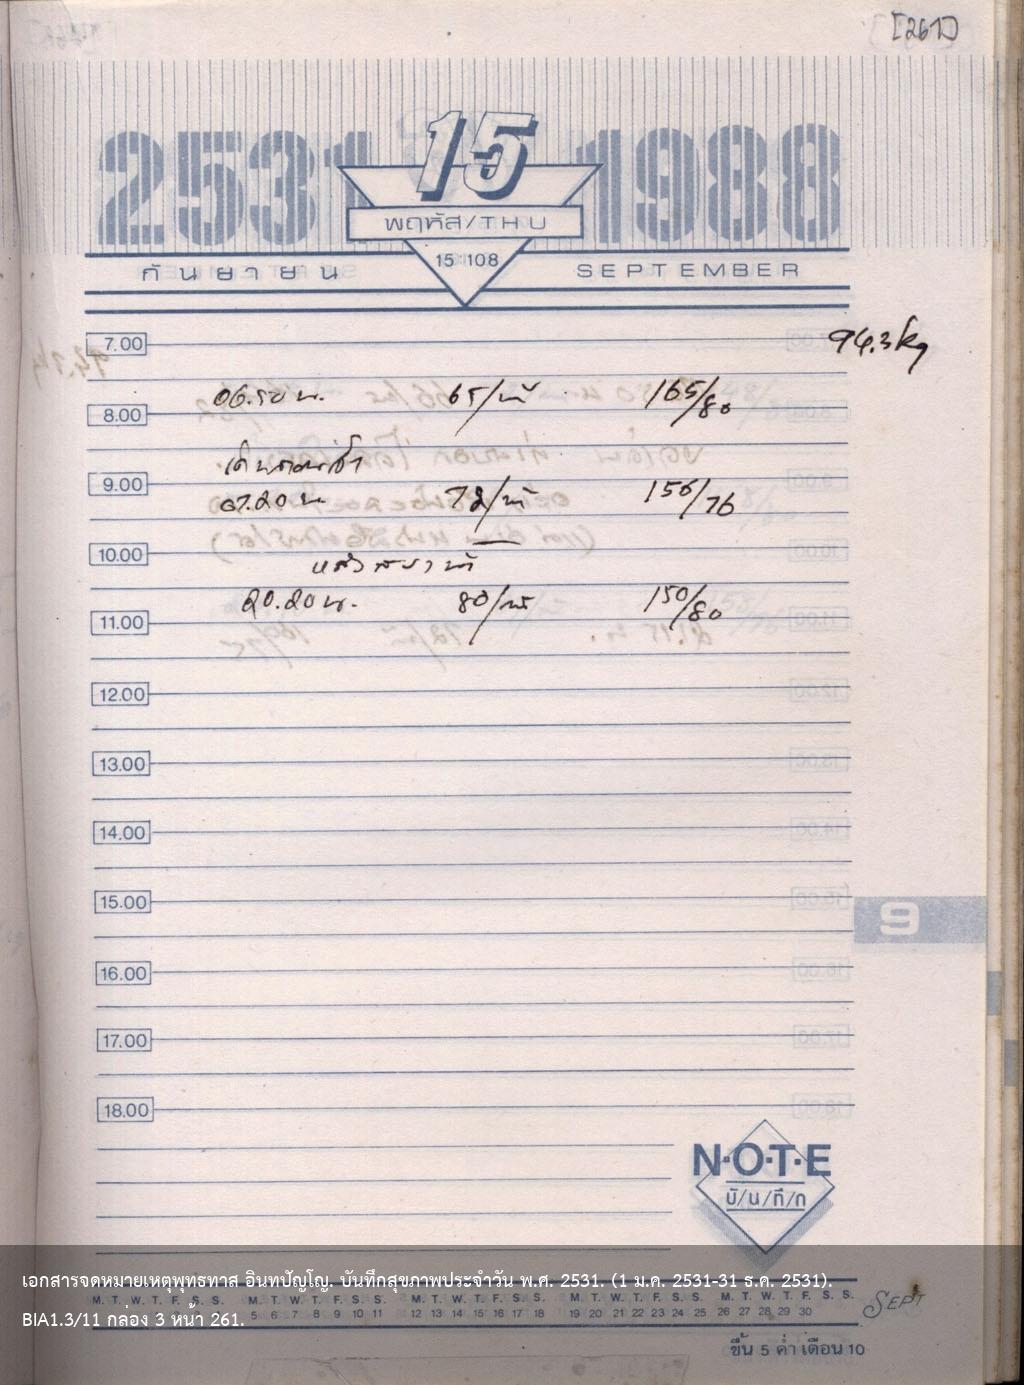 [261]
2531 15 1988
พฤหัส/THU
กันยายน 15:108 SEPTEMBER
7.00 94.3 kg
06.50 น. 65/นาที 165/80
8.00
เดินตอนเช้า
9.00
07.20 น 72/นาที 156/76
10.00
หลังสรงน้ำ
20.20 น. 80/นาที 150/80
11.00
12.00
13.00
14.00
15.00
9
16.00
17.00
18.00
N·O·T·E
บั/น/ทึ/ก
เอกสารจดหมายเหตุพุทธทาส อินทปัญโญ. บันทึกสุขภาพประจำวัน พ.ศ. 2531. (1 ม.ค. 2531-31 ธ.ค. 2531).
M. T. W. T. F. S. S. M. T. W. T. F. S. S. M. T. W. T. F. S. S. M. T. W. T. F. S. S. M. T. W. T. F. S. S. SEPT
5 6 7 8 9 10 11 12 13 14 15 16 17 18 19 20 21 22 23 24 25 26 27 28 29 30
BIA1.3/11 กล่อง 3 หน้า 261.
ขึ้น 5 ค่ำ เดือน 10